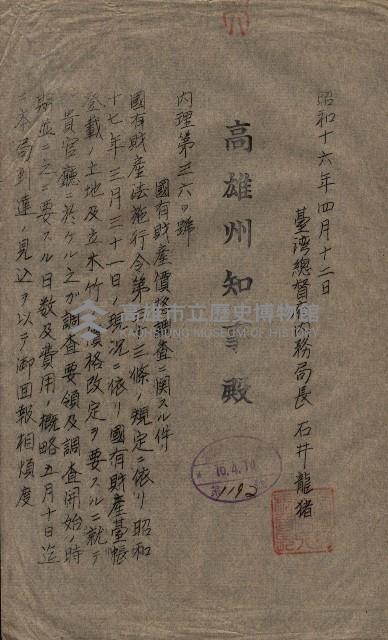 昭和十六年四月十二日
臺灣總督府內務局長 石井龍猪
高雄州知事殿
內理第三六〇號
國有財產價格調査ニ關スル件
國有財產法施行令第二十三條ノ規定ニ依リ昭和
十七年三月三十一日ノ現況ニ依リ國有財產臺帳
登載ノ土地及立木竹ノ價格改定ヲ要スルニ就テ
貴官廳ニ於ケル之ガ調査要領及調査開始ノ時
期並ニ之ニ要スル日數及費用ノ概略五月十日迄
ニ本局到達ノ見込ヲ以テ御回報相煩度
16.4.14
1192
高雄市立歷史博物館
KAOHSIUNG MUSEUM OF HISTORY